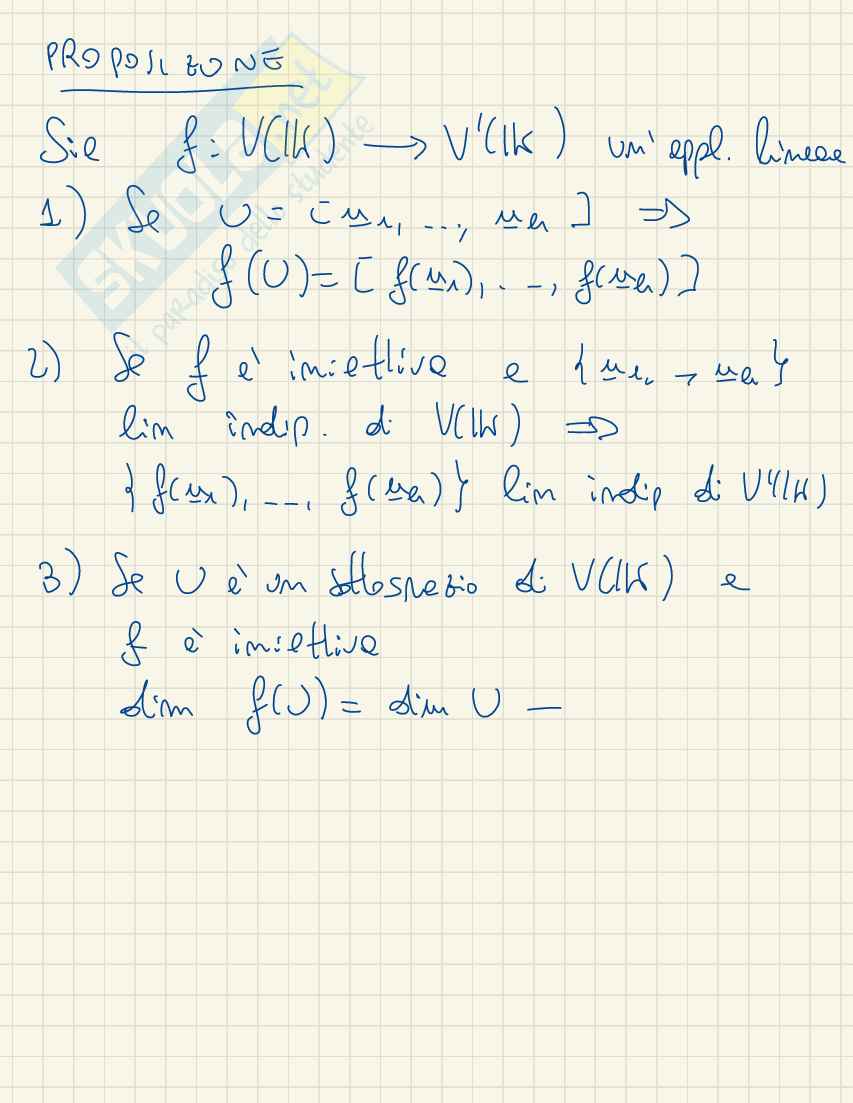 PROPOSIZIONE
Sia f: V(IK) → V'(IK) un' appl. lineare
1) Se U = [u1, ..., uh] ⇒
f(U) = [f(u1), ..., f(uh)]
2) Se f è iniettiva e {u1, → uh}
lin indip. di V(IK) ⇒
{f(u1), ..., f(uh)} lin indip di V'(IK)
3) Se U è un sottospazio di V(IK) e
f è iniettiva
dim f(U) = dim U —
SKUOLA.net
il paradiso dello studente